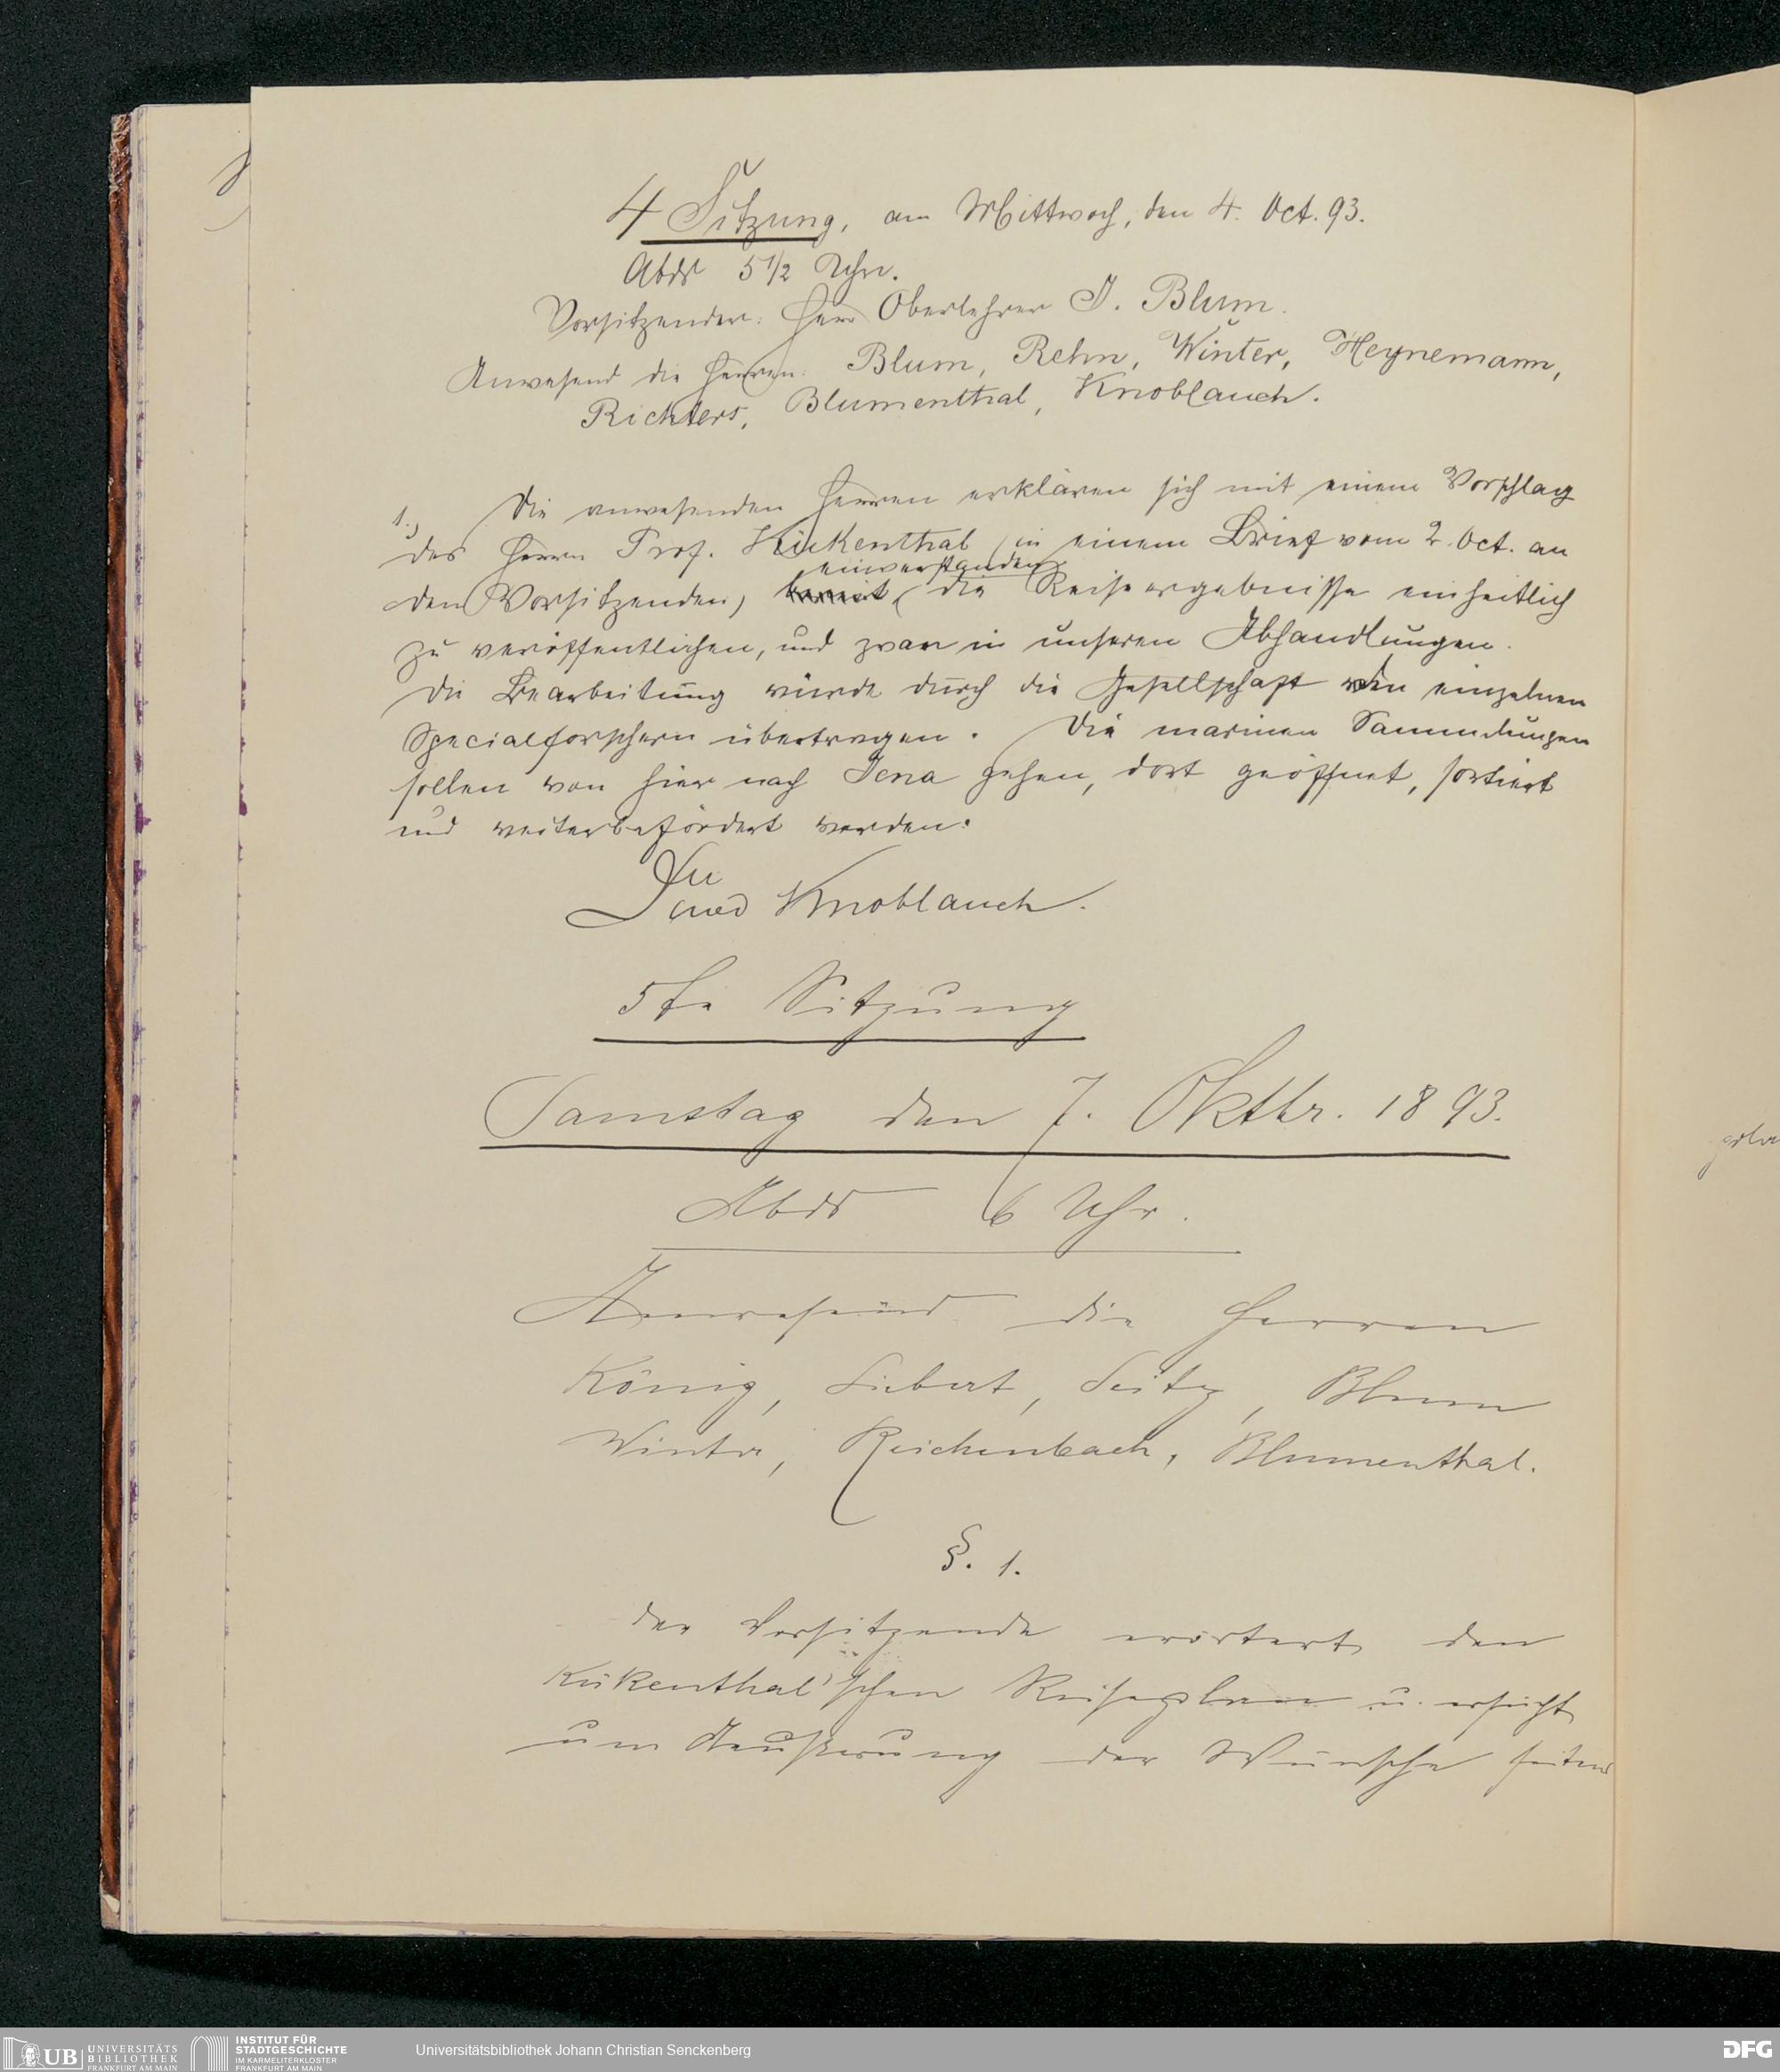 4 Sitzung, am Mittwoch, den 4. Oct. 93.
Abds 5 1/2 Uhr.
Vorsitzender: Herr Oberlehrer J. Blum.
Anwesend die Herren: Blum, Rehn, Winter, Heynemann,
Richters, Blumenthal, Knoblauch.
1., Die anwesenden Herren erklären sich mit einem Vorschlag
des Herrn Prof. Kükenthal (in einem Brief vom 2. Oct. an
einverstanden
den Vorsitzenden), die Reiseergebnisse einheitlich
zu veröffentlichen, und zwar in unseren Abhandlungen.
Die Bearbeitung würde durch die Gesellschaft den einzelnen
Specialforschern übertragen. Die marinen Sammlungen
sollen von hier nach Jena gehen, dort geöffnet, sortiert
und weiterbefördert werden.
Knoblauch.
5te Sitzung
Samstag den 7. Oktbr. 1893.
Abds 6 Uhr.
Anwesend die Herren
König, Siebert, Seitz, Blum
Winter, Reichenbach, Blumenthal.
§. 1.
Der Vorsitzende erörtert den
Kükenthal'schen Reiseplan u. ersucht
um Aeußerung der Wünsche seitens
UB UNIVERSITÄTS
BIBLIOTHEK
FRANKFURT AM MAIN
INSTITUT FÜR
STADTGESCHICHTE
IM KARMELITERKLOSTER
FRANKFURT AM MAIN
Universitätsbibliothek Johann Christian Senckenberg
DFG